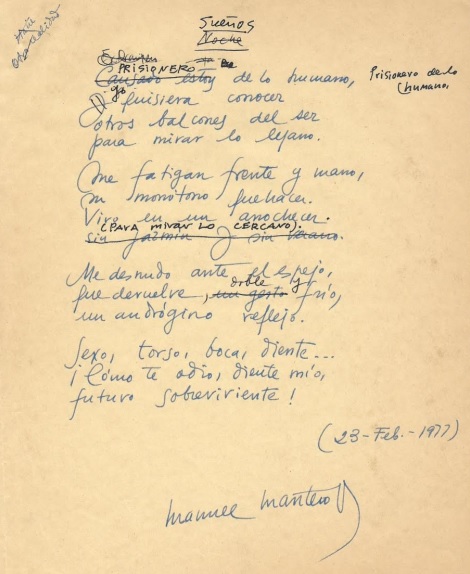 Sueños
Noche
PRISIONERO
Cansado estoy de lo humano,
Prisionero de lo
humano,
yo quisiera conocer
otros balcones del ser
para mirar lo lejano.
Me fatigan frente y mano,
mi monótono quehacer.
Vivo en un anochecer.
(PARA MIRAR LO CERCANO).
sin jazmín y sin verano.
Me desnudo ante el espejo,
doble y
que devuelve, un gesto frío,
un andrógino reflejo.
Sexo, torso, boca, diente...
¡Cómo te odio, diente mío,
futuro sobreviviente!
(23-Feb.-1977)
Manuel Mantero